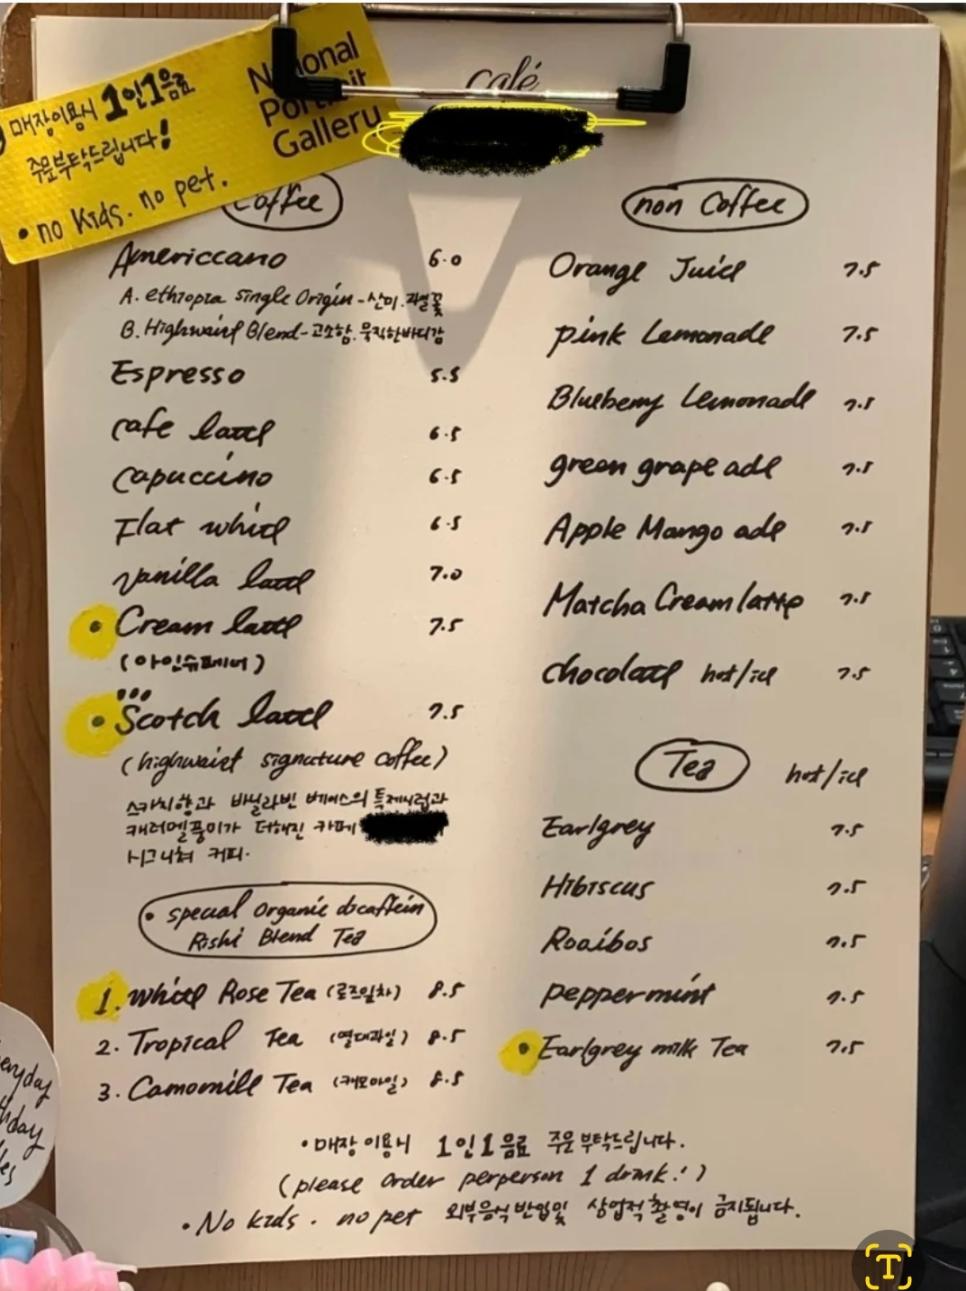 매장이용시 1인1음료
주문부탁드립니다!
• no kids. no pet.
National
Portrait
Gallery
café
Coffee
Americcano 6.0
A. ethiopia single Origin - 산미.과일.꽃
B. Highwaist Blend - 고소함.묵직한바디감
Espresso 5.5
cafe latte 6.5
capuccino 6.5
Flat white 6.5
vanilla latte 7.0
• Cream latte 7.5
(아인슈페너)
• Scotch latte 7.5
(highwaist signature coffee)
스카치향과 바닐라빈 베이스의 특제시럽과
캐러멜풍미가 더해진 카페
시그니쳐 커피.
• special Organic decaffein
Rishi Blend Tea
1. White Rose Tea (로즈잎차) 8.5
2. Tropical Tea (열대과일) 8.5
3. Camomille Tea (캐모마일) 8.5
non Coffee
Orange Juice 7.5
pink Lemonade 7.5
Blueberry Lemonade 7.5
green grape ade 7.5
Apple Mango ade 7.5
Matcha Cream latte 7.5
chocolate hot/ice 7.5
Tea hot/ice
Earlgrey 7.5
Hibiscus 7.5
Rooibos 7.5
peppermint 7.5
• Earlgrey milk Tea 7.5
• 매장 이용시 1인1음료 주문 부탁드립니다.
(please order perperson 1 drink!)
• No kids. no pet 외부음식 반입및 상업적 촬영이 금지됩니다.
day